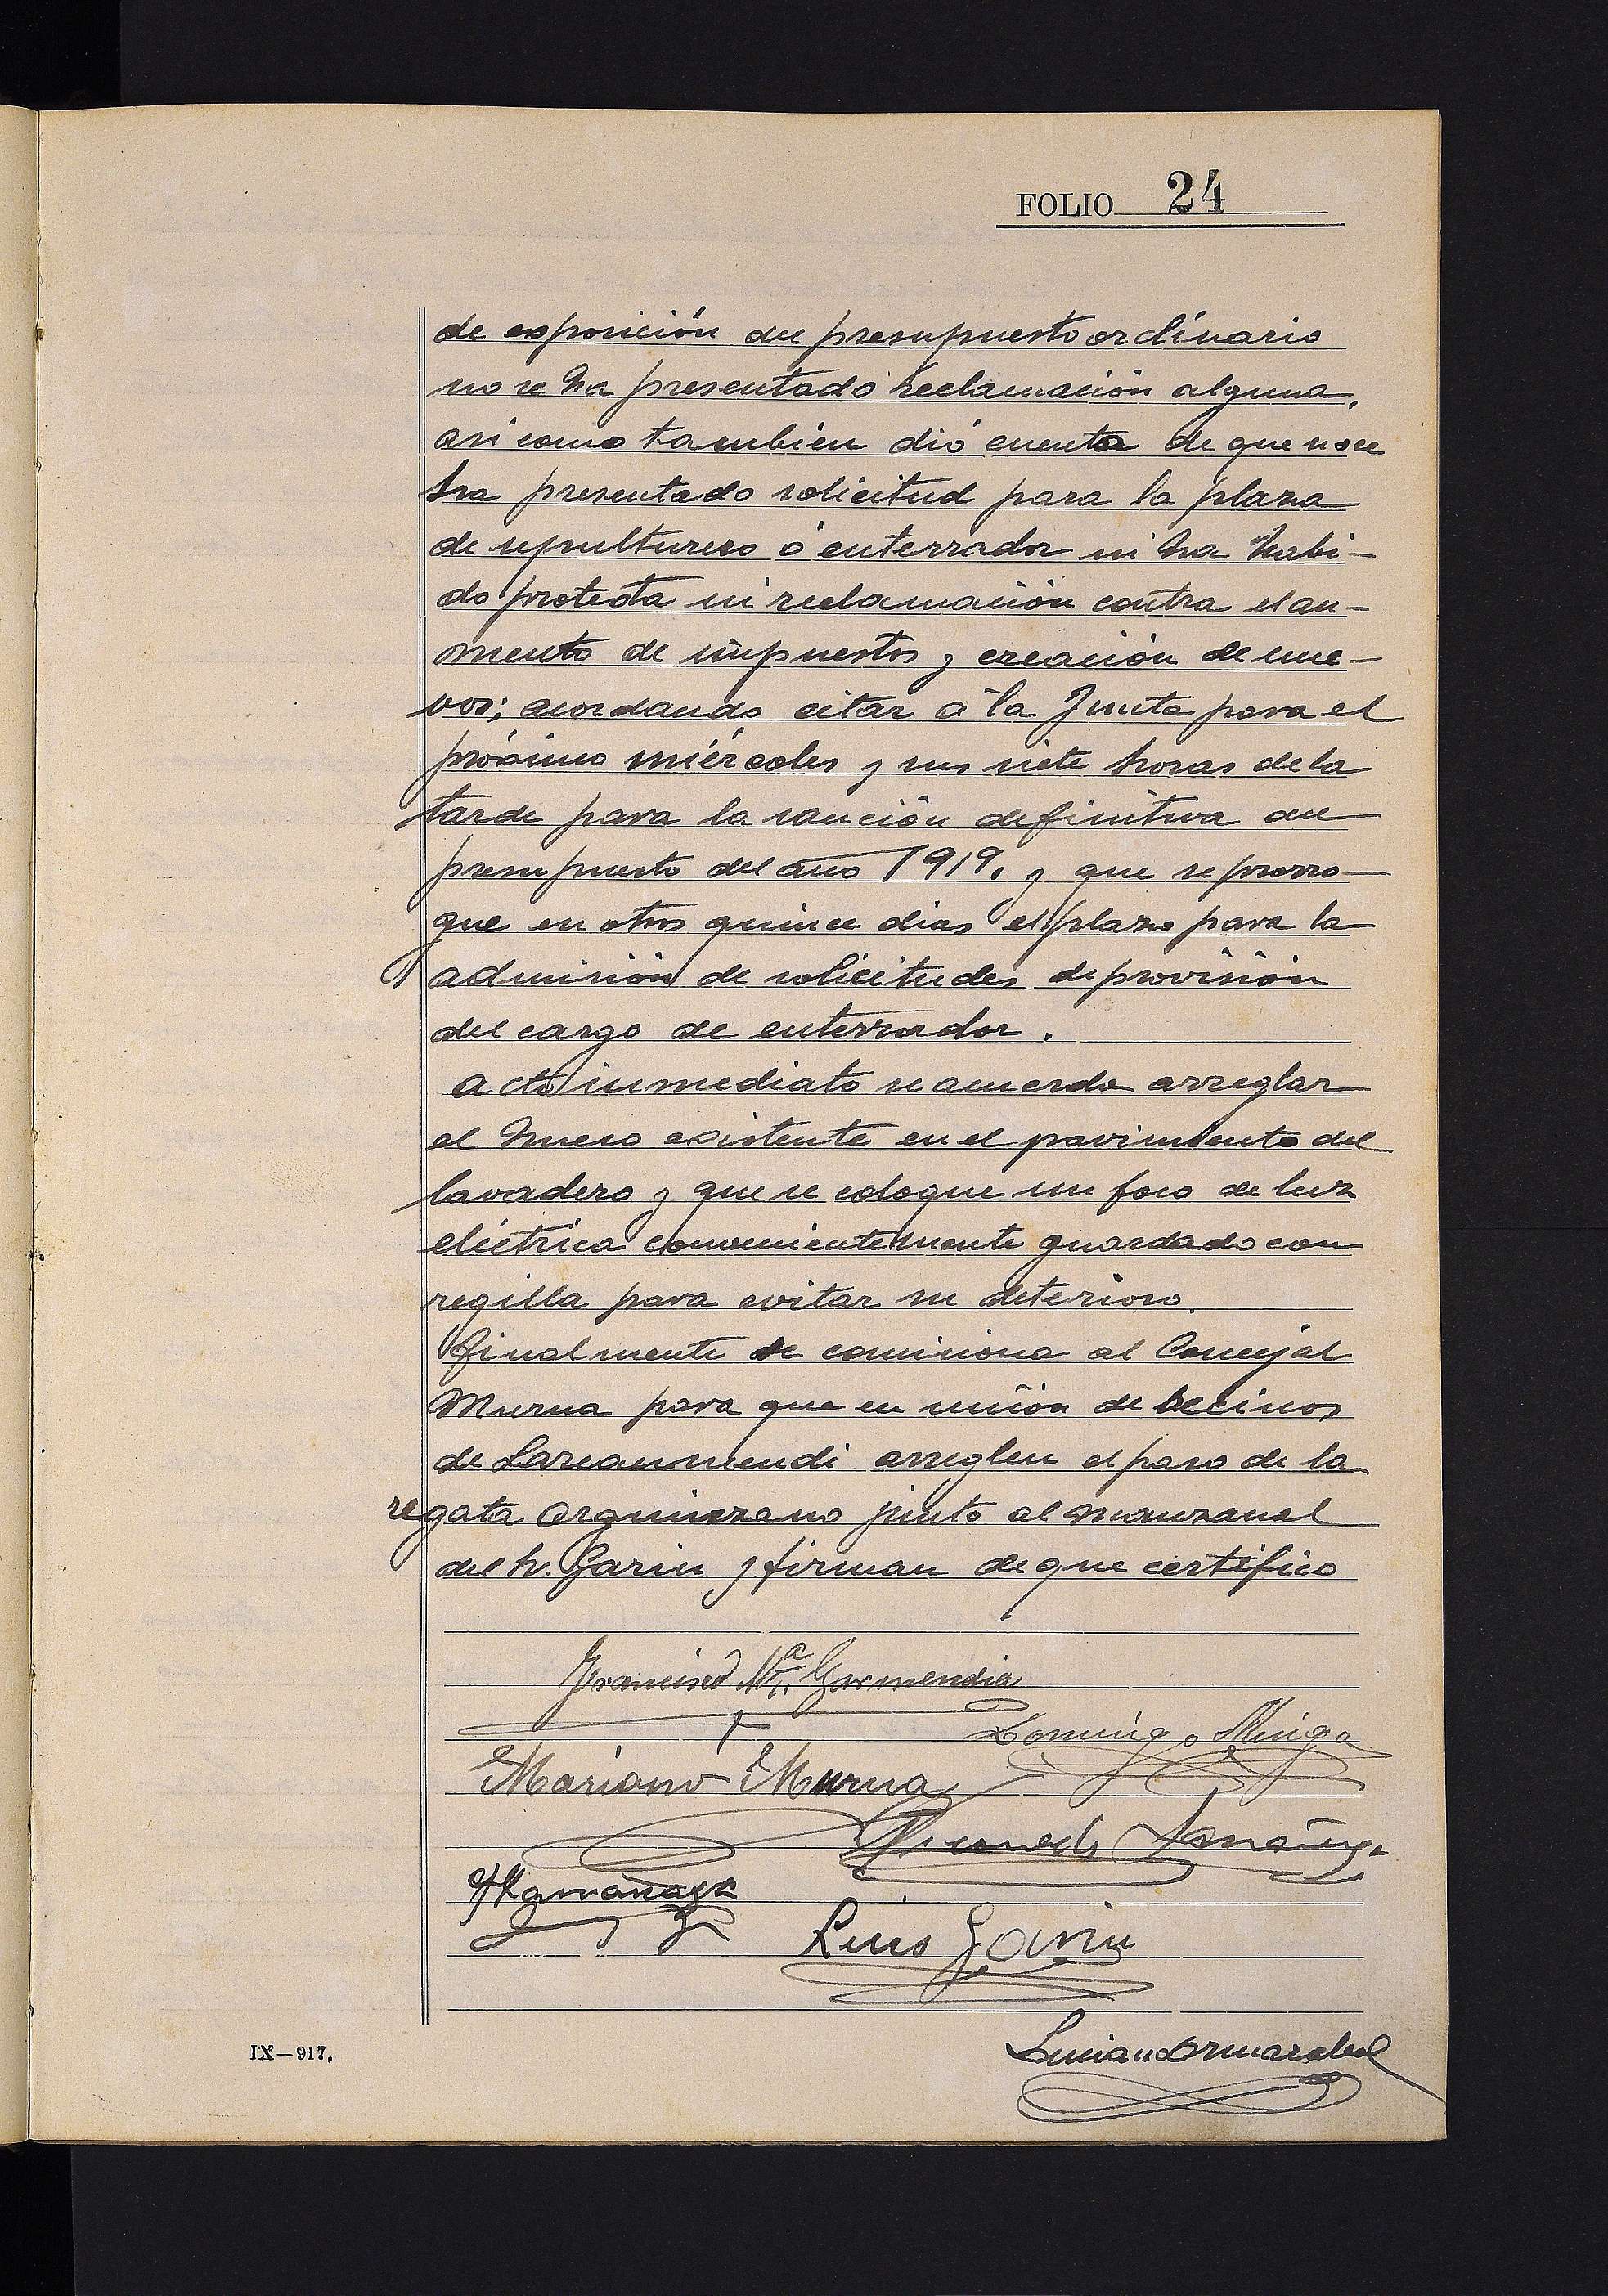 FOLIO 24
de exposición del presupuesto ordinario
no se ha presentado reclamación alguna,
asi como también dió cuenta de que no se
ha presentado solicitud para la plaza
de sepulturero ó enterrador ni ha habi-
do protesta ni reclamación contra el au-
mento de impuestos y creación de nue-
vos; acordando citar á la Junta para el
próximo miércoles y sus siete horas de la
tarde para la sanción definitiva del
presupuesto del año 1919. y que se prorro-
gue en otros quince dias el plazo para la
admisión de solicitudes de provisión
del cargo de enterrador.
Acto inmediato se acuerda arreglar
el hueco existente en el pavimento del
lavadero y que se coloque un foco de luz
eléctrica convenientemente guardado con
regilla para evitar su deterioro.
Finalmente se comisiona al Concejal
Murua para que en unión de vecinos
de Larcaunmendi arreglen el paso de la
regata Arguinzano junto al manzanal
del Sr. Garin y firman de que certifico
Francisco Mª. Garmendia
Domingo Muga
Mariano Murua
Luis Garin
Luciano Ormazabal
IX—917.